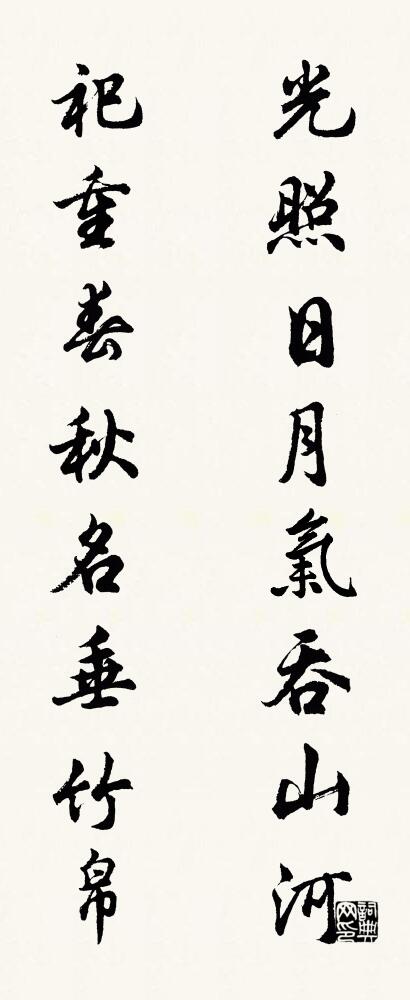 光照日月氣吞山河
祀重春秋名垂竹帛
詞典网印